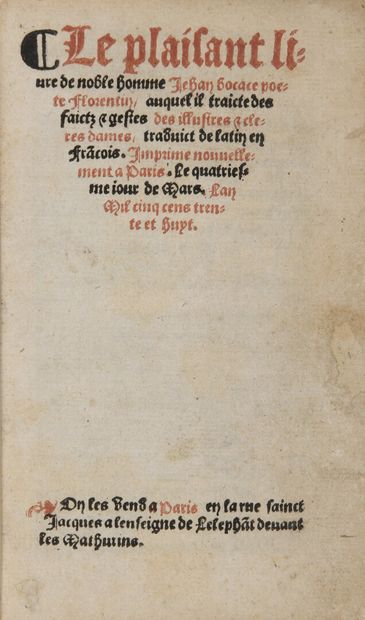 ¶ Le plaisant li-
ure de noble homme Jehan bocace poe-
te Florentin, auquel il traicte des
faictz & gestes des illustres & cle-
res dames, traduict de latin en
Frãcois. Imprime nouuelle-
ment a Paris. Le quatries-
me iour de Mars. Lan
Mil cinq cens tren-
te et huyt.
On les vend a Paris en la rue sainct
Jacques a lenseigne de Lelephãt deuant
les Mathurins.